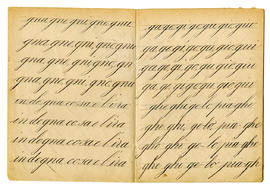 gna gne gni gno gnu
gna, gne, gni, gno, gnu
gna, gne, gni, gno, gn
gna, gne, gni, gno, gn
in de gna co sa e l'i ra
in de gna co sa e l'i ra
in de gna co sa e l'i ra
in de gna co sa e l'i ra
ga ge gi go gu gio giu
ga ge gi go gu gio giu
ga ge gi go gu gio giu
ga ge gi go gu gio giu
ghe ghi ge lo pia ghe
ghe ghi, ge lo, pia-ghe
ghe ghi, ge-lo, pia-ghe
ghe ghi ge-lo pia gh